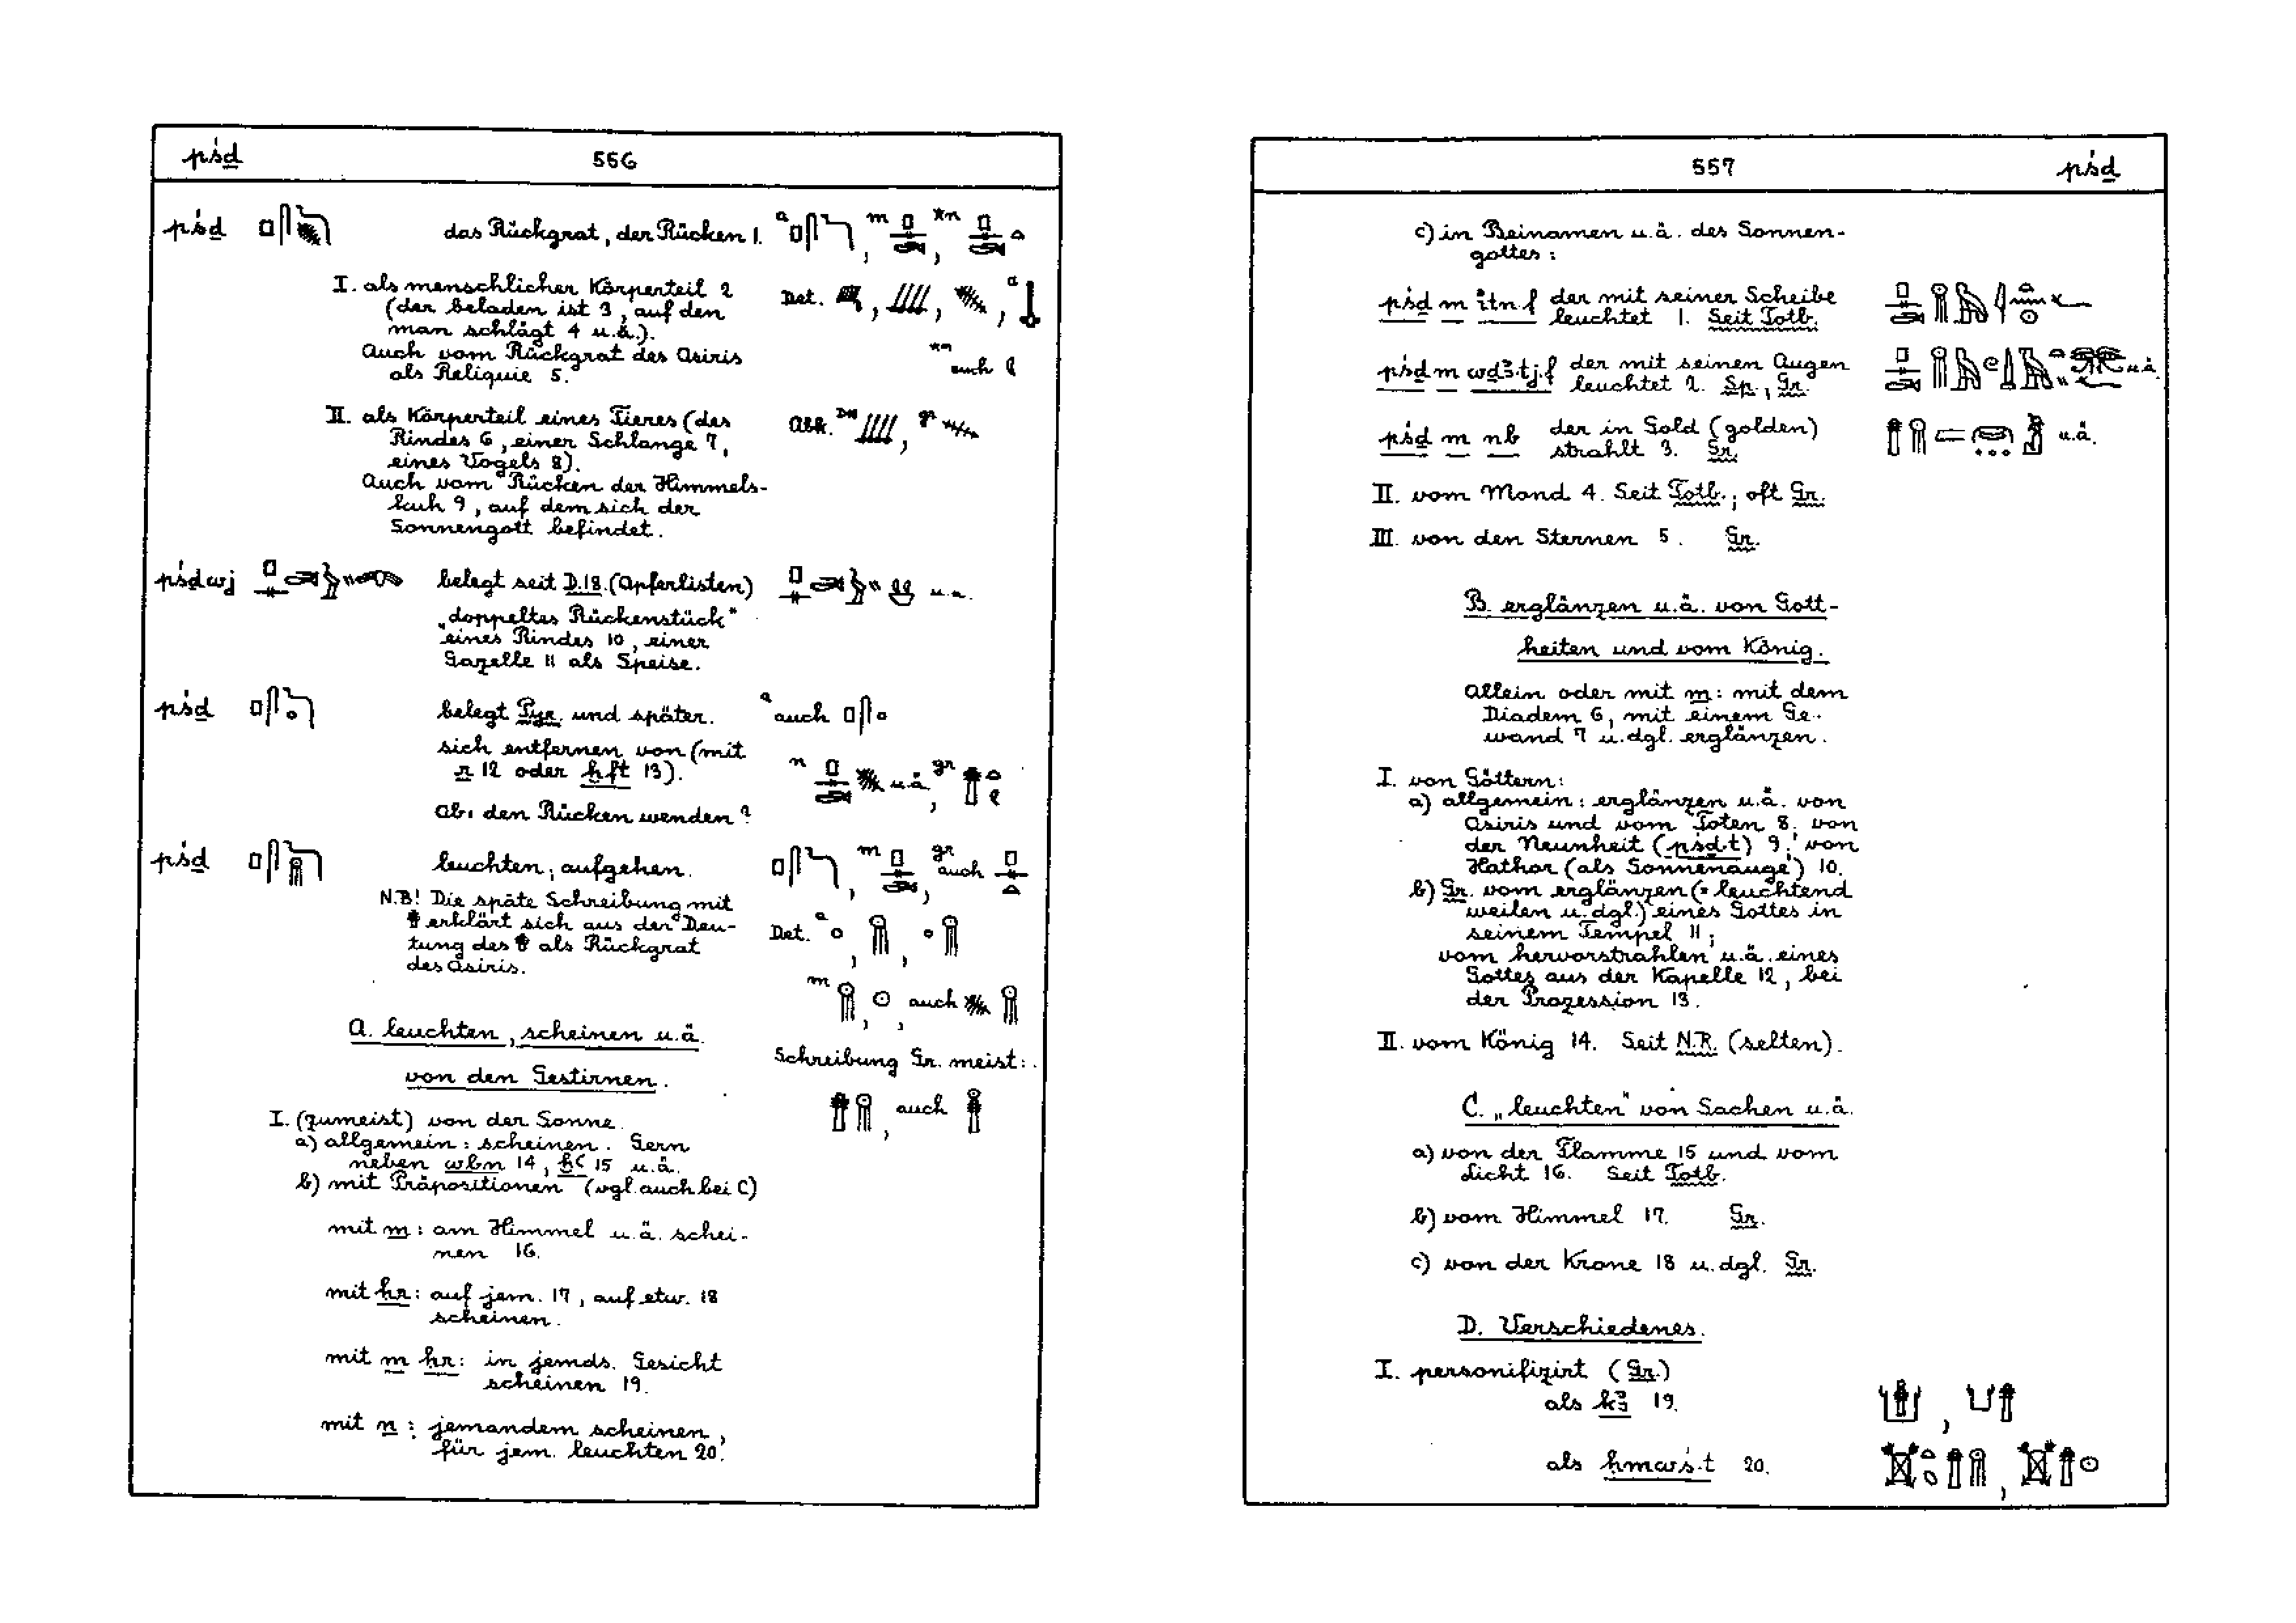 pśḏ 556
pśḏ das Rückgrat, der Rücken 1.
I. als menschlicher Körperteil 2
(der beladen ist 3, auf den
man schlägt 4 u.ä.).
Auch vom Rückgrat des Osiris
als Reliquie 5.
a , m , *n
Det. , , , a
auch
II. als Körperteil eines Tieres (des
Rindes 6, einer Schlange 7,
eines Vogels 8).
Auch vom Rücken der Himmels-
kuh 9, auf dem sich der
Sonnengott befindet.
Abk. , gr
pśḏwj belegt seit D.18. (Opferlisten)
„doppeltes Rückenstück"
eines Rindes 10, einer
Gazelle 11 als Speise.
pśḏ belegt Pyr. und später.
sich entfernen von (mit
r 12 oder ḫft 13).
Ob: den Rücken wenden?
a auch
n u.ä., gr
pśḏ leuchten, aufgehen.
N.B! Die späte Schreibung mit
erklärt sich aus der Deu-
tung des als Rückgrat
des Osiris.
, m , gr auch
Det. a , ,
m , , auch
Schreibung Gr. meist:
, auch
A. leuchten, scheinen u.ä.
von den Gestirnen.
I. (zumeist) von der Sonne.
a) allgemein: scheinen. Gern
neben wbn 14, ḫꜥ 15 u.ä.
b) mit Präpositionen (vgl. auch bei C)
mit m: am Himmel u.ä. schei-
nen 16.
mit ḥr: auf jem. 17, auf etw. 18
scheinen.
mit m ḥr: in jemds. Gesicht
scheinen 19.
mit n: jemandem scheinen,
für jem. leuchten 20.
557 pśḏ
c) in Beinamen u.ä. des Sonnen-
gottes:
pśḏ m itn.f der mit seiner Scheibe
leuchtet 1. Seit Totb.
pśḏ m wḏꜣ.tj.f der mit seinen Augen
leuchtet 2. Sp., Gr.
u.ä.
pśḏ m nb der in Gold (golden)
strahlt 3. Gr.
u.ä.
II. vom Mond 4. Seit Totb.; oft Gr.
III. von den Sternen 5. Gr.
B. erglänzen u.ä. von Gott-
heiten und vom König.
Allein oder mit m: mit dem
Diadem 6, mit einem Ge-
wand 7 u.dgl. erglänzen.
I. von Göttern:
a) allgemein: erglänzen u.ä. von
Osiris und vom Toten 8; von
der Neunheit (pśḏ.t) 9; von
Hathor (als Sonnenauge) 10.
b) Gr. vom erglänzen (= leuchtend
weilen u.dgl.) eines Gottes in
seinem Tempel 11;
vom hervorstrahlen u.ä. eines
Gottes aus der Kapelle 12, bei
der Prozession 13.
II. vom König 14. Seit N.R. (selten).
C. „leuchten" von Sachen u.ä.
a) von der Flamme 15 und vom
Licht 16. Seit Totb.
b) vom Himmel 17. Gr.
c) von der Krone 18 u.dgl. Gr.
D. Verschiedenes.
I. personifizirt (Gr.)
als kꜣ 19.
als ḥmwś.t 20.